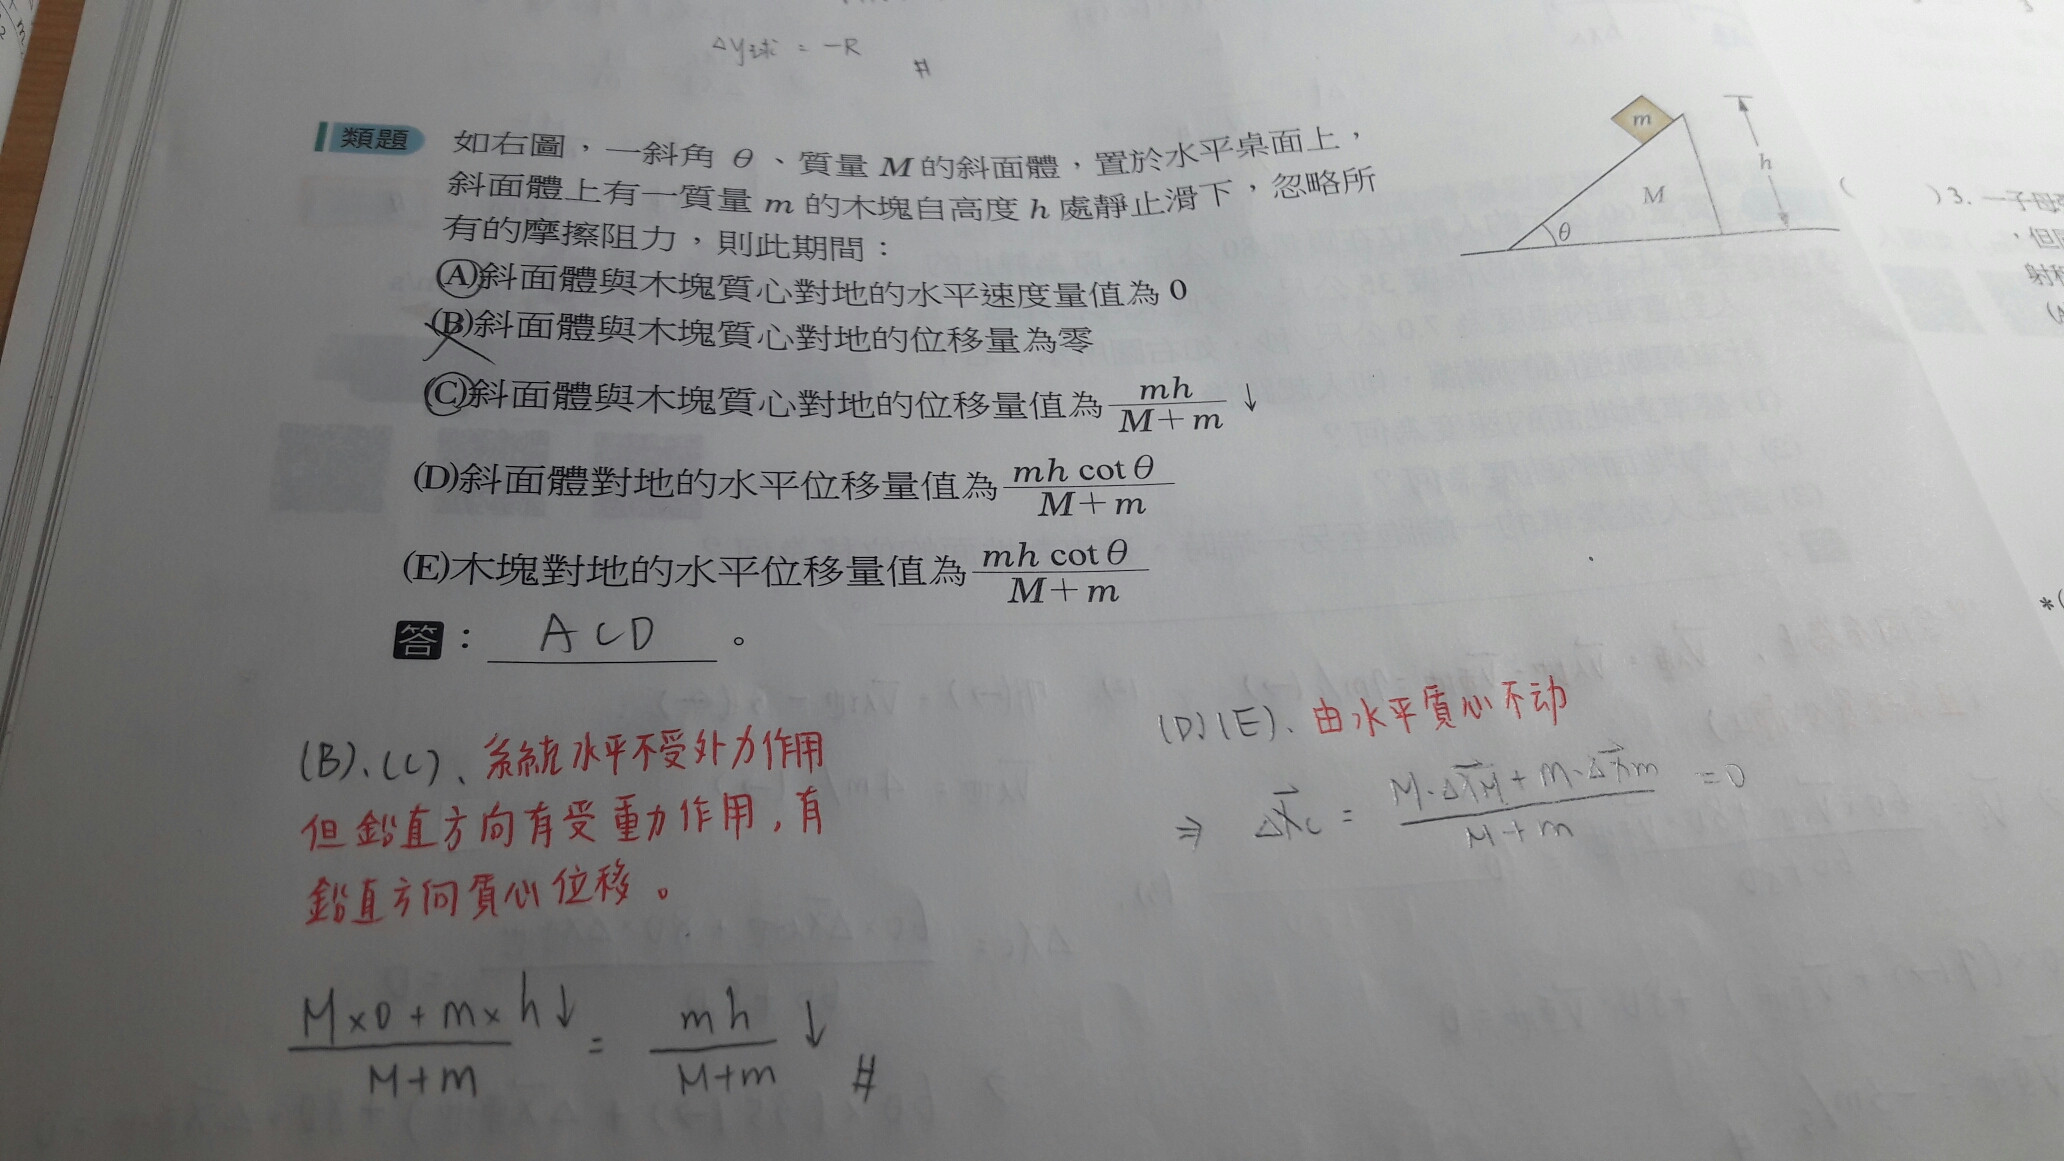 Δy球 = -R #
類題 如右圖，一斜角 θ、質量 M 的斜面體，置於水平桌面上，
斜面體上有一質量 m 的木塊自高度 h 處靜止滑下，忽略所
有的摩擦阻力，則此期間：
(A)斜面體與木塊質心對地的水平速度量值為 0
(B)斜面體與木塊質心對地的位移量為零
(C)斜面體與木塊質心對地的位移量值為 mh/(M+m) ↓
(D)斜面體對地的水平位移量值為 mh cot θ/(M+m)
(E)木塊對地的水平位移量值為 mh cot θ/(M+m)
答： ACD 。
m
M
h
θ
(B)、(C)、系統水平不受外力作用
但鉛直方向有受重力作用，有
鉛直方向質心位移。
(M×0+m×h↓)/(M+m) = mh/(M+m) ↓ #
(D)(E)、由水平質心不动
⇒ ΔX⃗c = (M·ΔX⃗M + m·ΔX⃗m)/(M+m) = 0
( )3. 一子母
，但
*(